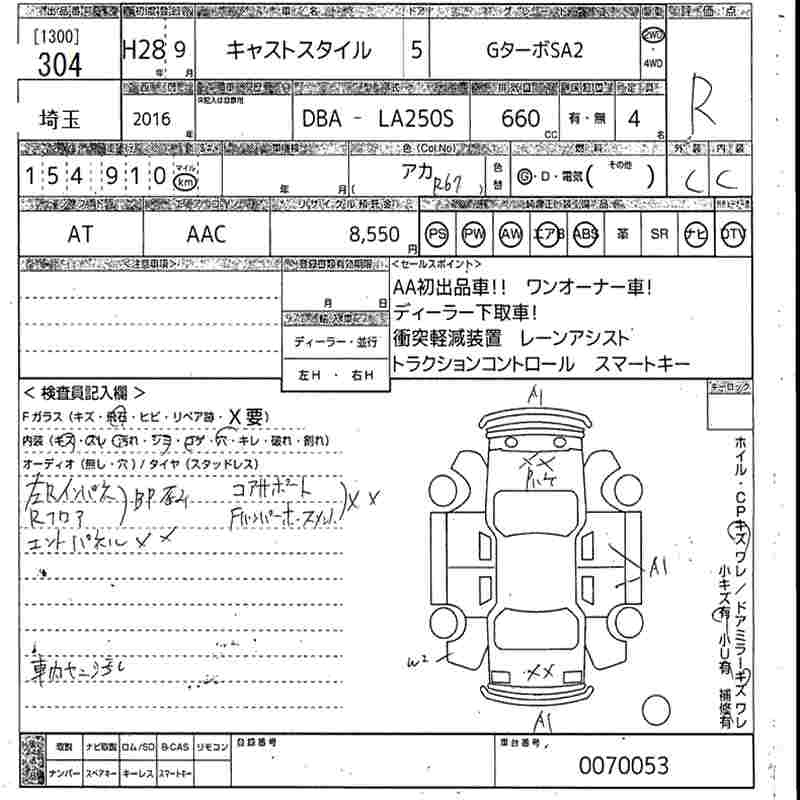 出品番号 初度登録年月 車 名 ドア グ レ ー ド 駆動 評 価 点
[1300]
304 H28 9 キャストスタイル 5 GターボSA2 2WD・4WD R
年 月
埼玉 2016 DBA - LA250S 660 有・無 4
年 CC 名
車検 色 (Col No) 燃 料 外 装 内 装
154910 マイル km 年 月 ( アカ R67 ) 色替 G・D・電気( その他 ) C C
リサイクル預託金
AT AAC 8,550円 PS PW AW エアB ABS 革 SR ナビ DTV
<注意事項> 登録書類有効期限 <セールスポイント>
月 日
AA初出品車!! ワンオーナー車!
ディーラー下取車!
輸 入 車
ディーラー・並行
衝突軽減装置 レーンアシスト
左H ・ 右H
トラクションコントロール スマートキー
< 検査員記入欄 >
キーロック
Fガラス (キズ・飛石・ヒビ・リペア跡・X要)
内装 (キズ・スレ・汚れ・シミ・コゲ・穴・キレ・破れ・割れ)
オーディオ (無し・穴) / タイヤ (スタッドレス)
左Rインパネ
Rフロア
コアサポート
XX
エンドパネル XX
A1
XX
A1
W2
XX
A1
ホイル・CPキズワレ/ドアミラーキズワレ
小キズ有・小U有 補修有
取説 ナビ取説 ロム/SD B-CAS リモコン 登録番号 車台番号
ナンバー スペアキー キーレス スマートキー
0070053